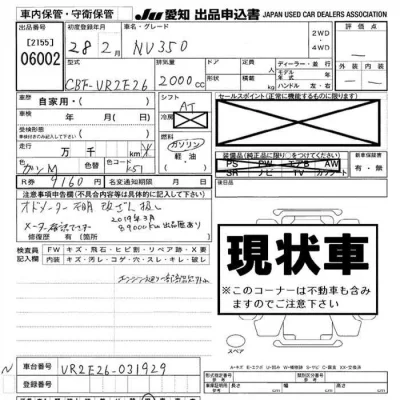 車内保管・守衛保管 JU 愛知 出品申込書 JAPAN USED CAR DEALERS ASSOCIATION
出品番号 初度登録年月 車名・グレード ドア 2WD 評価点
[2155] 28年2月 NV350 ・4WD
06002 型式 排気量 ドア 人 ディーラー・並行
CBF-VR2E26 2000cc モデル年式 年 外装 内装
ハンドル 左・右
車歴 自家用・( ) シフト AT セールスポイント(正常に機能するものに限ります)
車検 年 月( ) 冷房
受検形態 燃料 ガソリン
走行 万 千 km 軽油
装備品(純正品に限り○をつけてください)
PS PW エアB AW 有・無
SR ナビ TV カワシート
色 ガンM 色替 カラーNo. K51 後日品
R券 9160円 名変通知期限 月 日
注意事項申告欄(不具合内容等は具体的に記入)
オドメーター不明 改ざん 扱し
メーター確認できず 2019年3月
89000km 出品歴あり
修復歴 有( ) 無
検査員記入欄 FW キズ・飛石・ヒビ割・リペア跡・X要
内装 キズ・汚レ・コゲ・穴・スレ・キレ・破レ
現状車
※このコーナーは不動車も含みますのでご注意下さい
スペア
車台番号 VR2E26-031929
登録番号